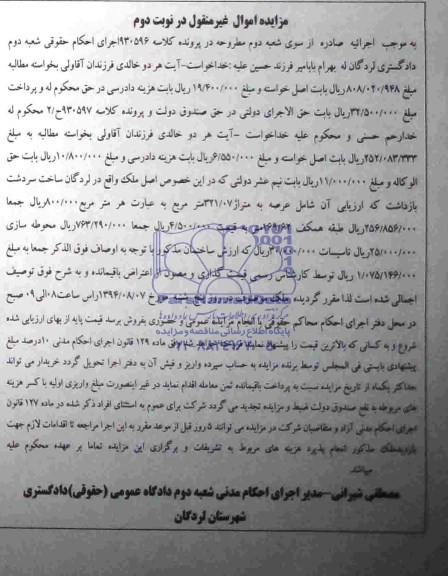 مزایده اموال غیرمنقول در نوبت دوم
به موجب اجرائیه صادره از سوی شعبه دوم مطروحه در پرونده کلاسه ۹۳۰۵۹۶اجرای احکام حقوقی شعبه دوم
دادگستری لردگان له بهرام بابامیر فرزند حسین علیه :خداخواست-آیت هر دو خالدی فرزندان آقاولی بخواسته مطالبه
مبلغ ۸۰۸/۰۲۰/۹۴۸ ریال بابت اصل خواسته و مبلغ ۱۹/۴۰۰/۰۰۰ ریال بابت هزینه دادرسی در حق محکوم له و پرداخت
مبلغ ۳۲/۵۰۰/۰۰۰ریال بابت حق الاجرای دولتی در حق صندوق دولت و پرونده کلاسه ۹۳۰۵۹۷ح/۲ محکوم له
خدارحم حسنی و محکوم علیه خداخواست -آیت هر دو خالدی فرزندان آقاولی بخواسته مطالبه به مبلغ
۲۵۲/۰۸۳/۳۳۳ریال بابت اصل خواسته و مبلغ ۶/۵۵۰/۰۰۰ریال بابت هزینه دادرسی و مبلغ ۱۰/۸۰۰/۰۰۰ریال بابت حق
الوکاله و مبلغ ۱۱/۰۰۰/۰۰۰ریال بابت نیم عشر دولتی که در این خصوص اصل ملک واقع در لردگان ساخت سردشت
بازداشت که ارزیابی آن شامل عرصه به متراژ۳۲۱/۰۷متر مربع به عبارت هر متر مربع ۸۰۰/۰۰۰ریال جمعا
۲۵۶/۸۵۶/۰۰۰ریال طبقه همکف به قیمت ۴/۵۰۰/۰۰۰ریال جمعا ۷۶۳/۲۹۰/۰۰۰ریال محوطه سازی
۲۵/۰۰۰/۰۰۰ریال تاسیسات ریال که ارزش ساختمان مذکور با توجه به اوصاف فوق الذکر جمعا به مبلغ
۱/۰۷۵/۱۴۶/۰۰۰ ریال توسط کارشناس رسمی قیمت گذاری و مصون از اعتراض باقیمانده و به شرح فوق توصیف
اجمالی شده است لذا مقرر گردیده ملک در روز مورخ ۱۳۹۴/۰۸/۰۷راس ساعت۰۸الی۰۹ صبح
در محل دفتر اجرای احکام محاکم حقوقی با انجام مزایده عمومی و حضوری بفروش برسد قیمت پایه از بهای ارزیابی شده
شروع و به کسانی که بالاترین قیمت را پیشنهاد نمایند ماده ۱۲۹ قانون اجرای احکام مدنی ۱۰درصد مبلغ
پیشنهادی بایستی فی المجلس توسط برنده مزایده به حساب سپرده واریز و فیش آن به دفتر اجرا تحویل گردد خریدار می تواند
حداکثر یکماه از تاریخ مزایده نسبت به پرداخت باقیمانده ثمن معامله اقدام نماید در غیر اینصورت مبلغ واریزی اولیه با کسر هزینه
های مربوطه به نفع صندوق دولت ضبط و مزایده تجدید می گردد شرکت برای عموم به استثنای افراد ذکر شده در ماده ۱۲۷ قانون
اجرای احکام مدنی آزاد و متقاضیان شرکت در مزایده می توانند ۵روز قبل از موعد مقرر به این اجرا مراجعه تا اقدامات لازم جهت
بازدیدملک مذکور انجام پذیرد هزینه های مربوط به تشریفات و برگزاری این مزایده تماما بر عهده محکوم علیه
میباشد
مصطفی شیرانی-مدیر اجرای احکام مدنی شعبه دوم دادگاه عمومی (حقوقی)دادگستری
شهرستان لردگان
پایگاه اطلاع رسانی مناقصه و مزایده